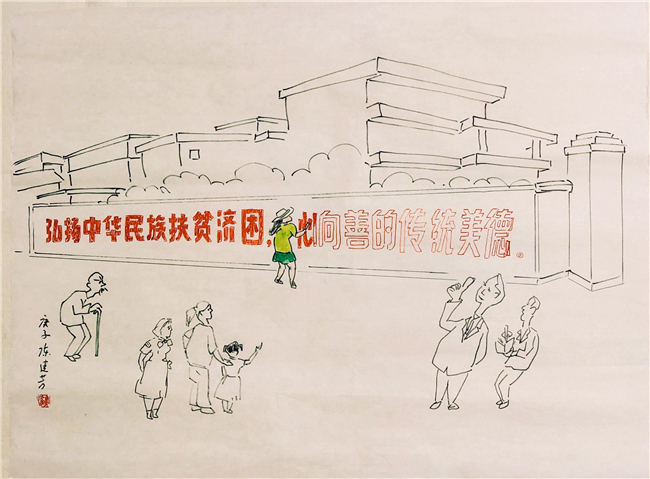 弘扬中华民族扶贫济困,向善的传统美德。
庚子陈建芳